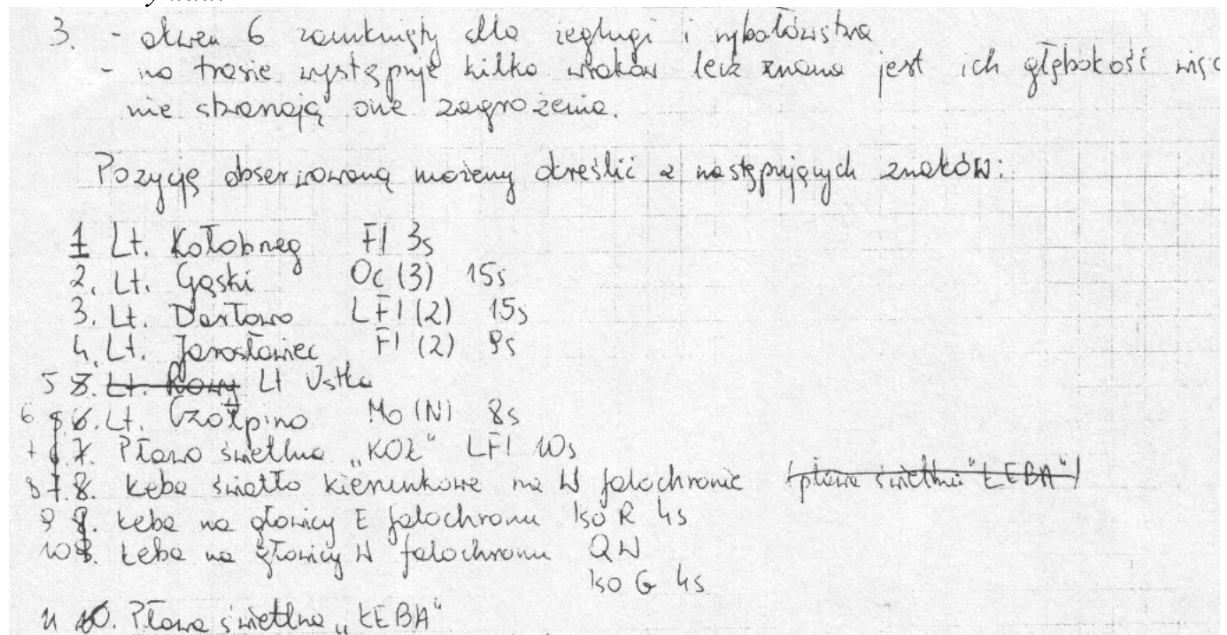 3. - akwen 6 zamknięty dla żeglugi i rybołówstwa
- na trasie występuje kilka wraków lecz znana jest ich głębokość więc
nie stwarzają one zagrożenia.
Pozycję obserwowaną możemy określić z następujących znaków:
1 Lt. Kołobrzeg Fl 3s
2. Lt. Gąski Oc (3) 15s
3. Lt. Darłowo LFl (2) 15s
4. Lt. Jarosławiec Fl (2) 9s
5 Lt. Rowy Lt Ustka
6 Lt. Czołpino Mo (N) 8s
7. Pława świetlna „KOŁ" LFl 10s
8. Łeba światło kierunkowe na W falochronie (pława świetlna "ŁEBA")
9 Łeba na głowicy E falochronu Iso R 4s
10 Łeba na głowicy W falochronu QW
Iso G 4s
11 10. Pława świetlna „ŁEBA"